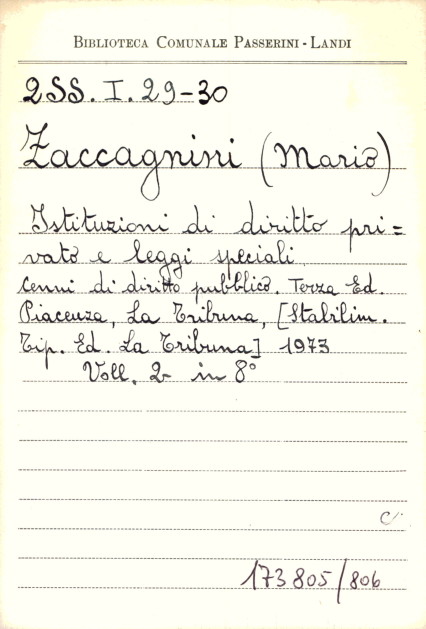 BIBLIOTECA COMUNALE PASSERINI-LANDI
2SS. I. 29-30
Zaccagnini (Mario)
Istituzioni di diritto pri=
vato e leggi speciali
cenni di diritto pubblico. Terza Ed.
Piacenza, La Tribuna, [Stabilim.
Tip. Ed. La Tribuna] 1973
Voll. 2 in 8°
173805/806